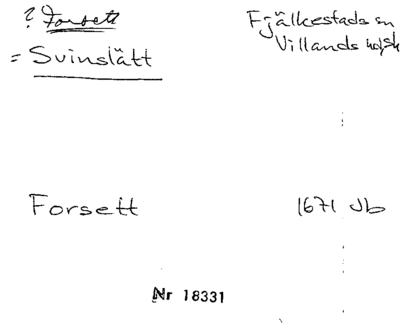 ? Forsett Fjälkestads sn
= Svinslätt Villands
Forsett 1671 Jb
Nr 18331